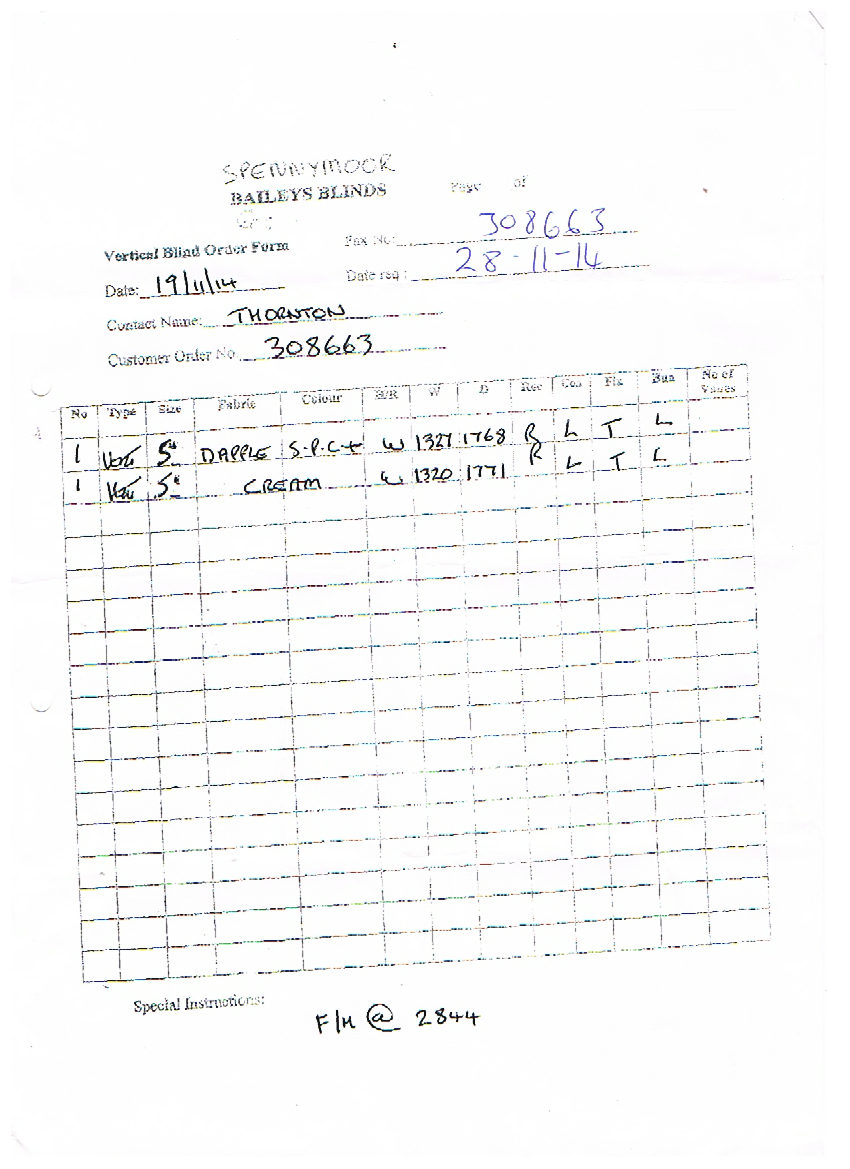 SPENNYMOOR
BAILEYS BLINDS Page of
Vertical Blind Order Form Fax No: 308663
Date: 19/11/14 Date req: 28-11-14
Contact Name: THORNTON
Customer Order No 308663
No Type Size Fabric Colour W D Rec Fix Bun No of Vanes
1 5" DAPPLE S.P.C+ W 1327 1768 R L T L
1 5" CREAM W 1320 1771 R L T L
Special Instructions:
F/H @ 2844